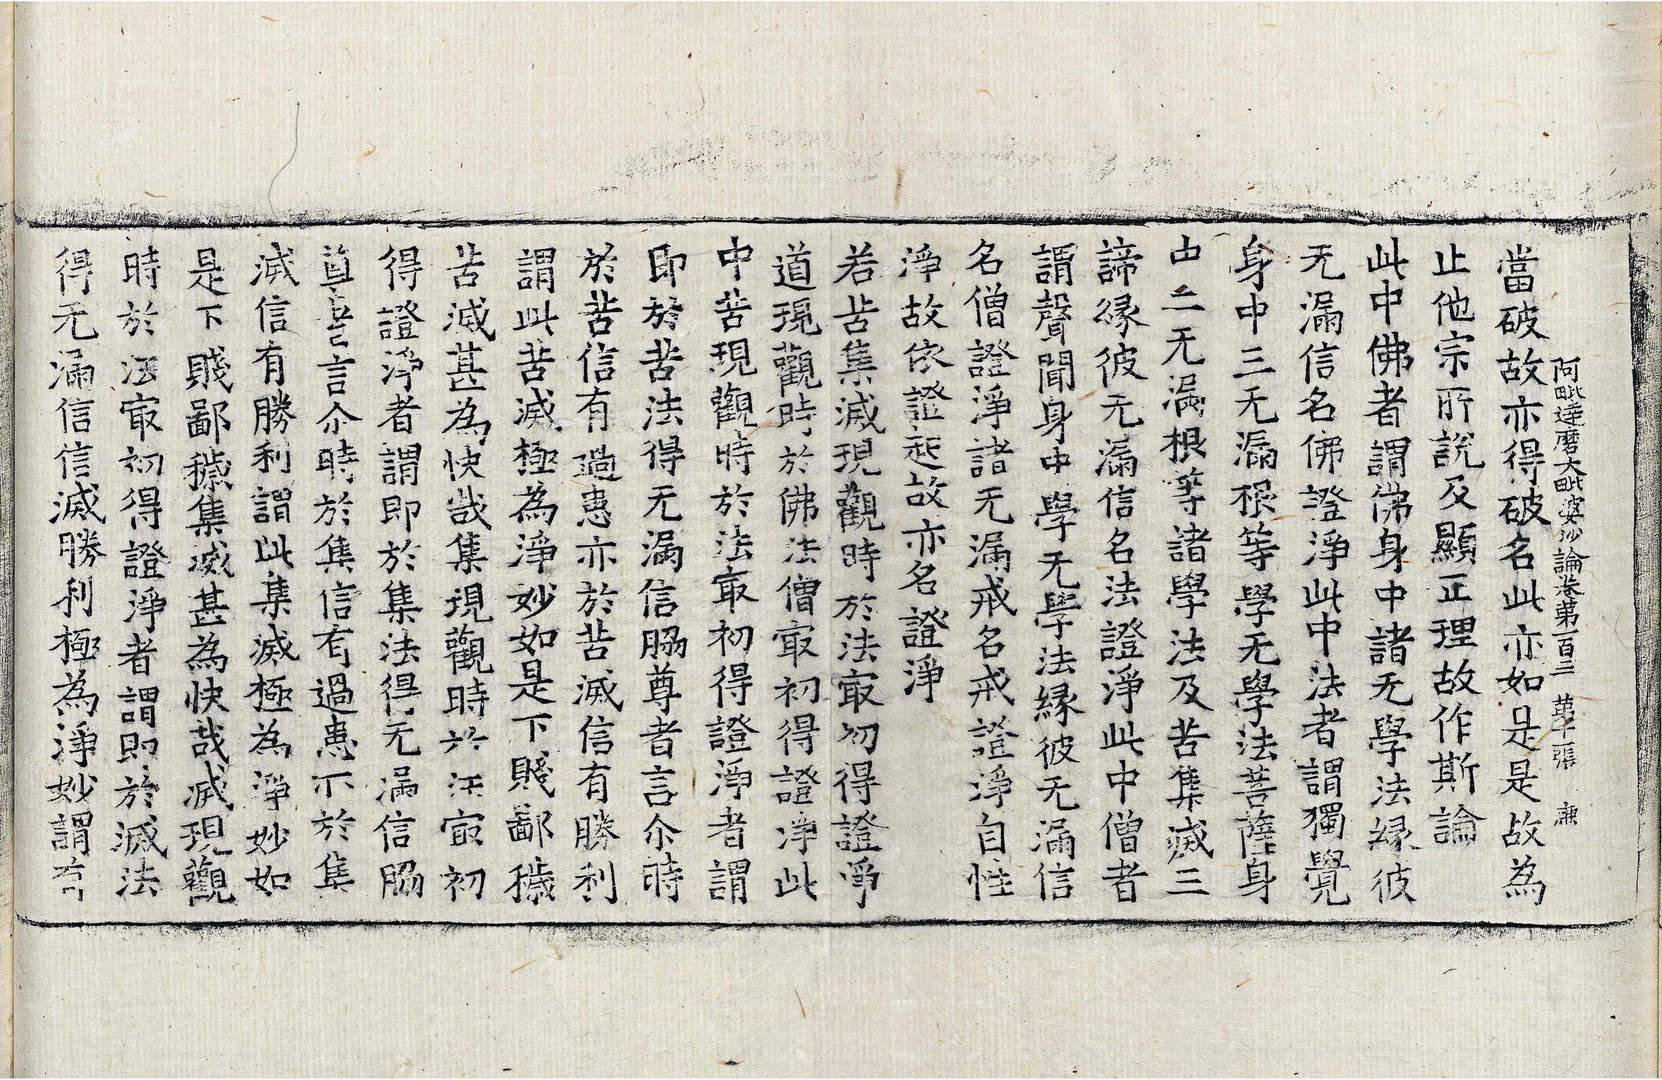 阿毗達磨大毗婆沙論卷第百三　第十二張　廉
當破故亦得破名此亦如是是故為
止他宗所說及顯正理故作斯論
此中佛者謂佛身中諸无學法緣彼
无漏信名佛證淨此中法者謂獨覺
身中三无漏根等學无學法菩薩身
中二无漏根等諸學法及苦集滅三
諦緣彼无漏信名法證淨此中僧者
謂聲聞身中學无學法緣彼无漏信
名僧證淨諸无漏戒名戒證淨自性
淨故依證起故亦名證淨
若苦集滅現觀時於法㝡初得證淨
道現觀時於佛法僧㝡初得證淨此
中苦現觀時於法㝡初得證淨者謂
即於苦法得无漏信脇尊者言尒時
於苦信有過患亦於苦滅信有勝利
謂此苦滅極為淨妙如是下賤鄙穢
苦滅甚為快哉集現觀時於法㝡初
得證淨者謂即於集法得无漏信脇
尊者言尒時於集信有過患亦於集
滅信有勝利謂此集滅極為淨妙如
是下賤鄙穢集滅甚為快哉滅現觀
時於法㝡初得證淨者謂即於滅法
得无漏信信滅勝利極為淨妙謂有